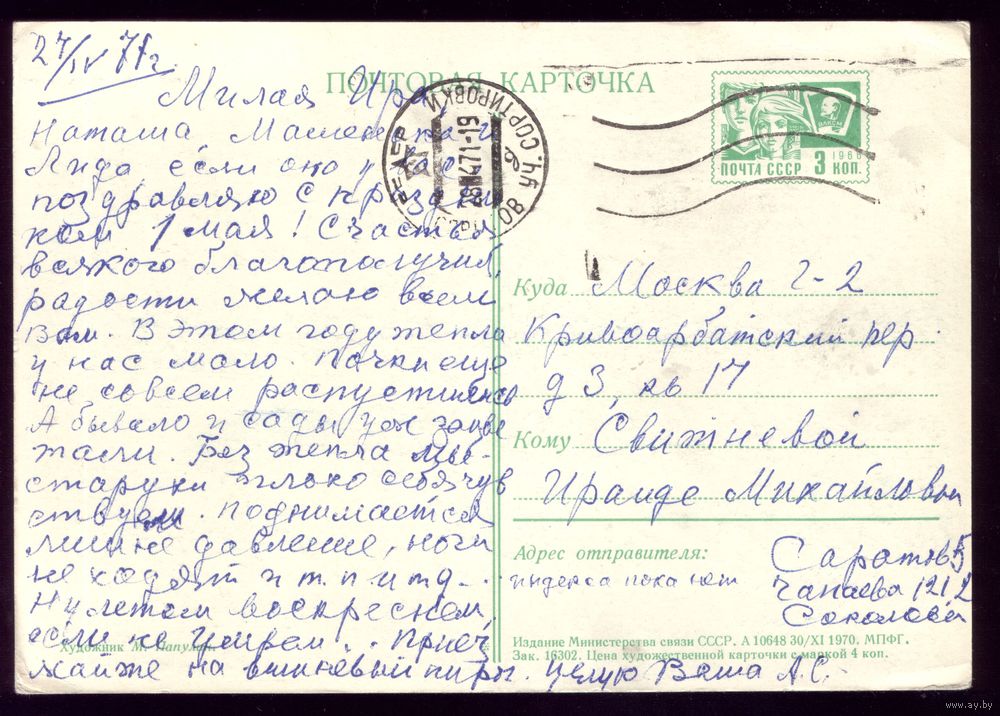 27/IV 71г.
ПОЧТОВАЯ КАРТОЧКА
Милая Ира
Наташа Машенька и
Лида, если она у вас
поздравляю с праздни
ком 1 мая! Счастья
всякого благополучия,
радости желаю всем
Вам. В этом году тепла
у нас мало. Почки еще
не совсем распустились
А бывало и сады уж зацве
тали. Без тепла мы-
старухи плохо себя чув
ствуем. Поднимается
давление, ноги
не ходят и т. п и т д...
Ну летом воскреснем,
если не умрем... Приез
жайте на вишневый пирог. Целую Ваша А.С.
Художник М. Папулин
ПОЧТА СССР 3 КОП.
1966
ВЛКСМ
САРАТОВ УЧ. СОРТИРОВКИ
28 4 71-19
6
Куда Москва Г-2
Кривоарбатский пер
д 3, кв 17
Кому Свижневой
Ираиде Михайловне
Адрес отправителя: Саратов 5
индекса пока нет Чапаева 121 2
Соколова
Издание Министерства связи СССР. А 10648 30/XI 1970. МПФГ.
Зак. 16302. Цена художественной карточки с маркой 4 коп.
www.ay.by